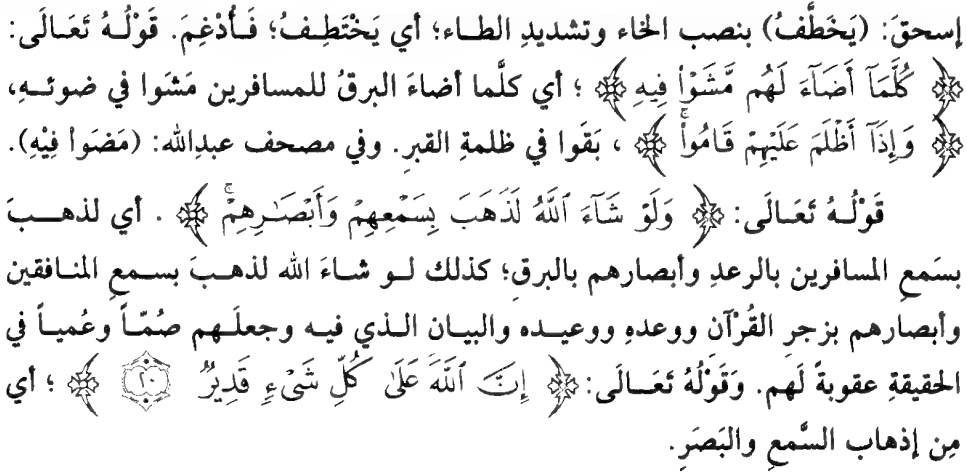 إسحقَ: (يَخَطَّفُ) بنصب الخاء وتشديدِ الطاء؛ أي يَخْتَطِفُ؛ فَأُدْغِمَ. قَوْلُهُ تَعَالَى:
﴿ كُلَّمَآ أَضَآءَ لَهُم مَّشَوْا۟ فِيهِ ﴾ ؛ أي كلَّما أضاءَ البرقُ للمسافرين مَشَوا في ضوئهِ،
﴿ وَإِذَآ أَظْلَمَ عَلَيْهِمْ قَامُوا۟ۚ ﴾ ، بَقَوا في ظلمةِ القبرِ. وفي مصحف عبدِالله: (مَضَواْ فِيْهِ).
قَوْلُهُ تَعَالَى: ﴿ وَلَوْ شَآءَ ٱللَّهُ لَذَهَبَ بِسَمْعِهِمْ وَأَبْصَـٰرِهِمْۚ ﴾ . أي لذهبَ
بسَمعِ المسافرين بالرعدِ وأبصارهم بالبرقِ؛ كذلك لو شاءَ الله لذهبَ بسمعِ المنافقين
وأبصارهم بزجرِ القُرْآن ووعدهِ ووعيده والبيان الذي فيه وجعلَهم صُمّاً وعُمياً في
الحقيقةِ عقوبةً لَهم. وَقَوْلُهُ تَعَالَى: ﴿ إِنَّ ٱللَّهَ عَلَىٰ كُلِّ شَىْءٍ قَدِيرٌ ٢٠ ﴾ ؛ أي
مِن إذهاب السَّمعِ والبَصَرِ.